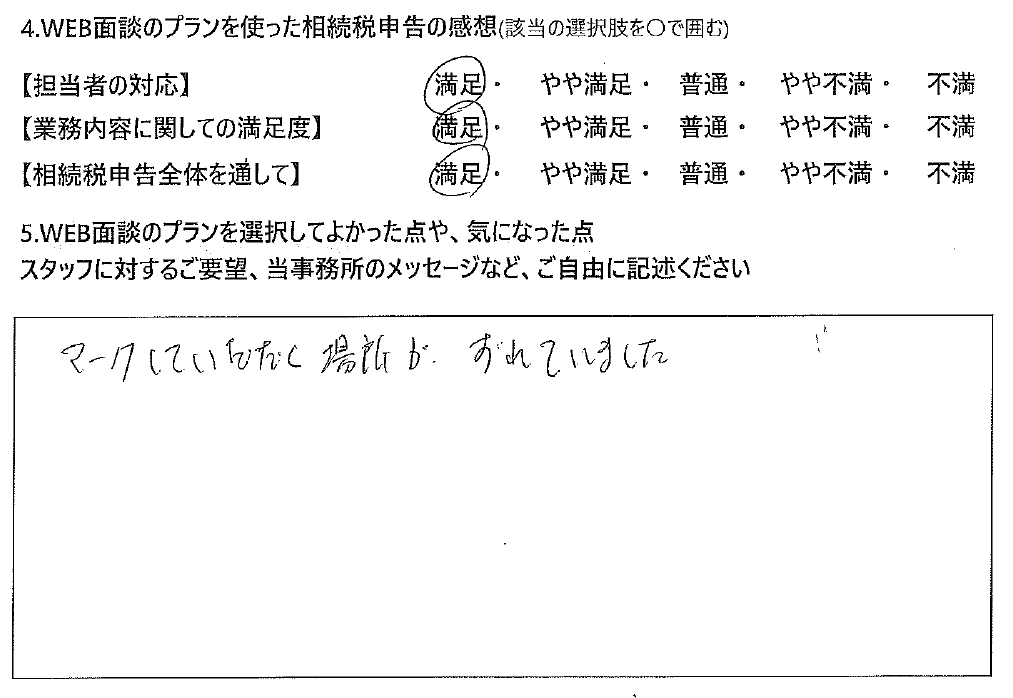 4.WEB面談のプランを使った相続税申告の感想(該当の選択肢を〇で囲む)
【担当者の対応】 満足・ やや満足・ 普通・ やや不満・ 不満
【業務内容に関しての満足度】 満足・ やや満足・ 普通・ やや不満・ 不満
【相続税申告全体を通して】 満足・ やや満足・ 普通・ やや不満・ 不満
5.WEB面談のプランを選択してよかった点や、気になった点
スタッフに対するご要望、当事務所のメッセージなど、ご自由に記述ください
マークしていただく場所が ずれていました